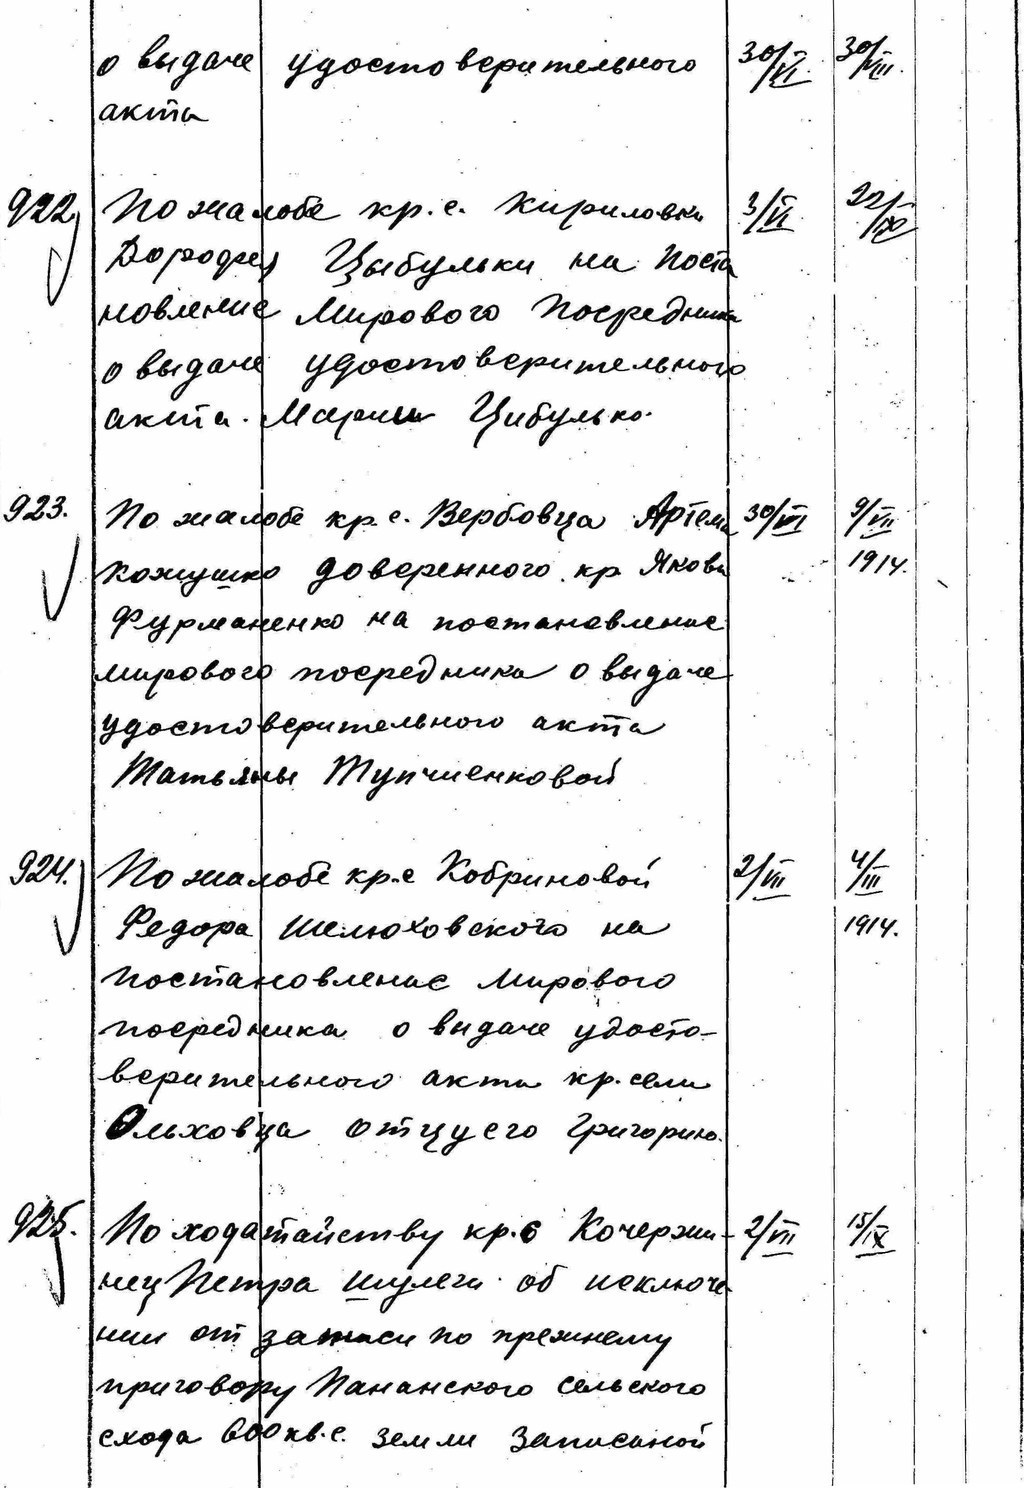 о выдаче удостоверительного 30/VI 30/VIII.
акта
922. По жалобе кр. с. Кириловки 3/VI 22/IX
Дорофея Цыбульки на Поста
новление Мирового Посредника
о выдаче удостоверительного
акта. Марии Цибулько.
923. По жалобе кр. с. Вербовца Артема 30/VI 9/VII
Кожушко доверенного кр Якова 1914.
Фурманенко на постановление
мирового посредника о выдаче
удостоверительного акта
Татьяны Тупчиенковой
924. По жалобе кр. с Кобриновой 2/VII 4/III
Федора Шелюховского на 1914.
постановление Мирового
посредника о выдаче удосто-
верительного акта кр. села
Ольховца отцу его Григорию.
925. По ходатайству кр. с Кочержи- 2/VII 15/IX
нец Петра Шулеги об исключе
нии от записи по прежнему
приговору Панского сельского
схода 600 кв. с. земли записаной